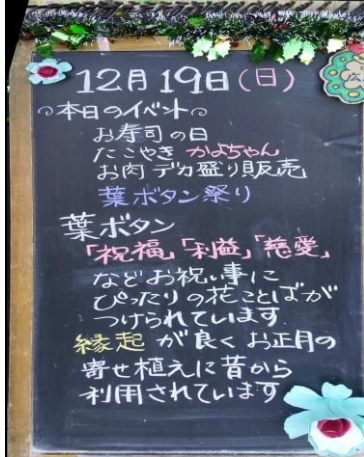 12月19日(日)
本日のイベント
お寿司の日
たこやき かよちゃん
お肉デカ盛り販売
葉ボタン祭り
葉ボタン
「祝福」「利益」「慈愛」
などお祝い事に
ぴったりの花ことばが
つけられています.
縁起が良くお正月の
寄せ植えに昔から
利用されています